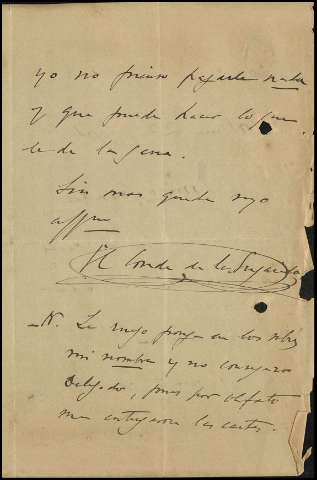 yo no pienso pagarle nada
y que puede hacer lo que
le de la gana.
Sin mas queda suyo
affmo
El Conde de las
N. Le ruego ponga en los sobres
mi nombre y no consejero
Delegado, pues por olfato
me entregaron las cartas.